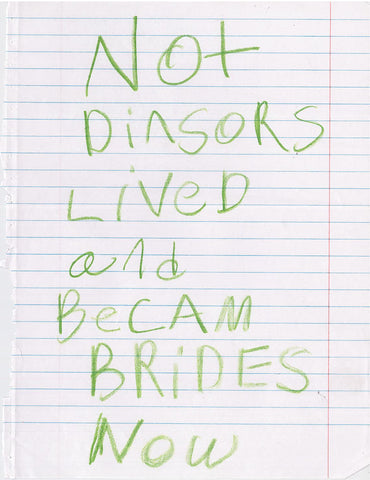 Not
DinSORS
LiVeD
and
BeCAM
BRiDES
Now